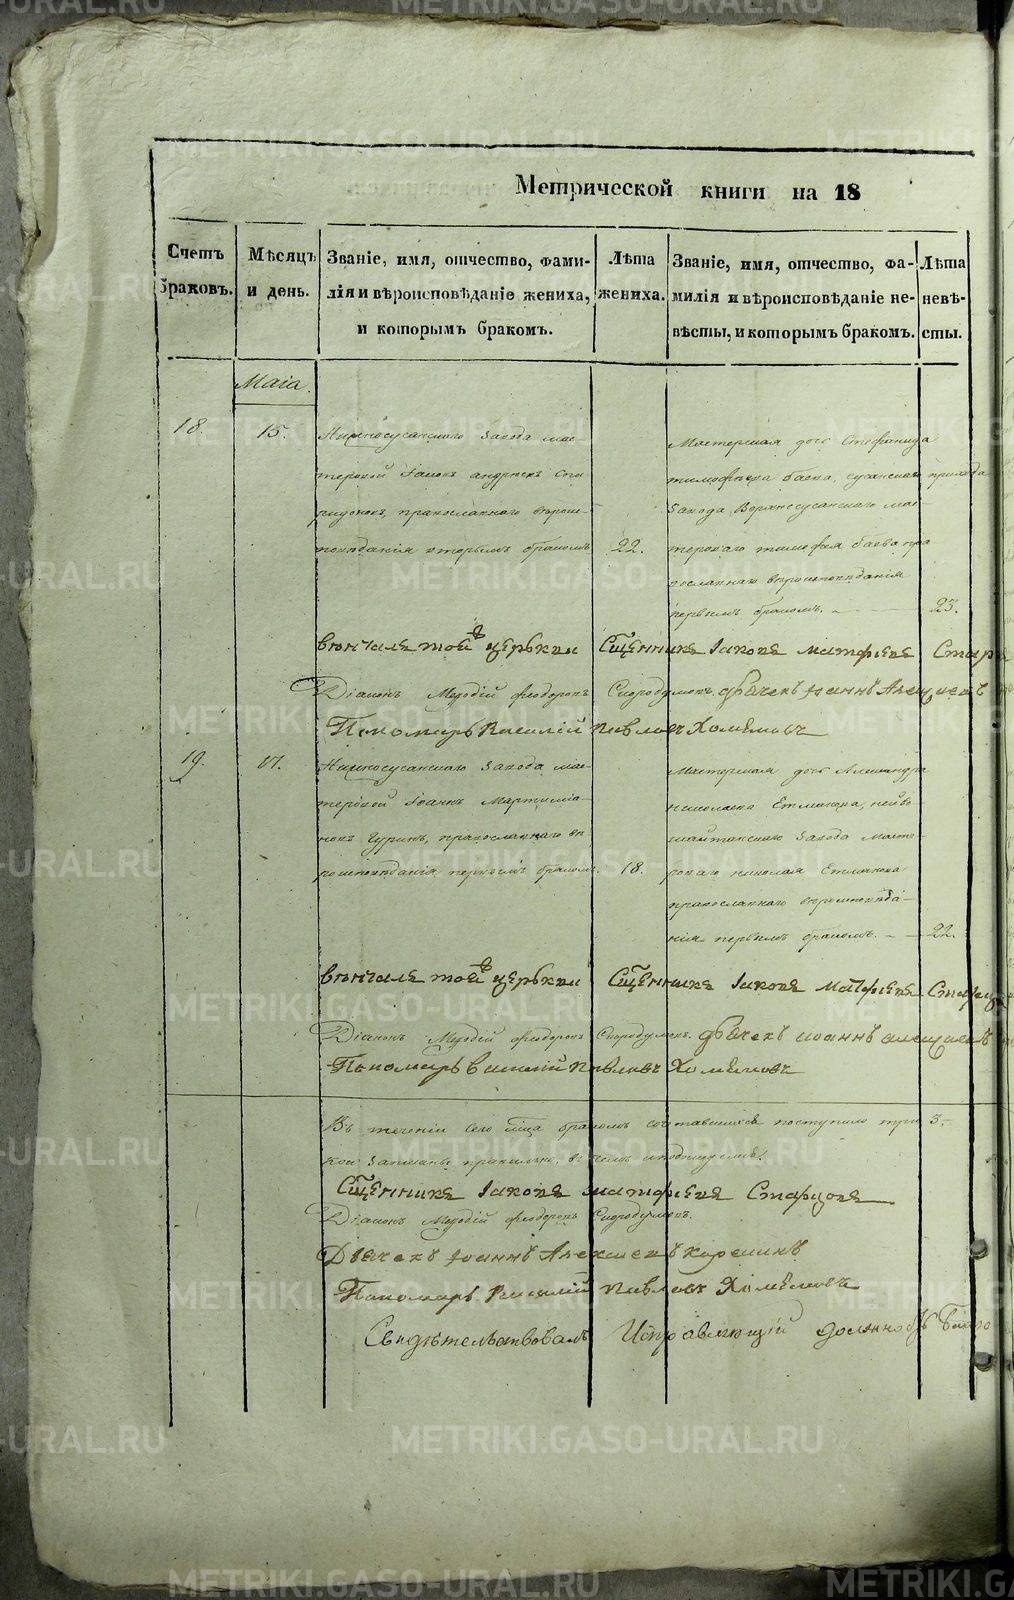 Метрической книги на 18
Счетъ браковъ.
Мѣсяцъ и день.
Званіе, имя, отчество, фами-
лія и вѣроисповѣданіе жениха,
и которымъ бракомъ.
Лѣта
жениха.
Званіе, имя, отчество, фа-
милія и вѣроисповѣданіе не-
вѣсты, и которымъ бракомъ.
Лѣта
невѣ-
сты.
Маія.
18.
15.
Нижнесусанскаго завода мас-
терской андреевъ Спи
ридоновъ, православнаго вѣроис-
повѣданія вторымъ бракомъ
22.
Мастерская дочь Стефанида
тимофѣева баева, сусанскаго прихода
завода Верхнесусанскаго мас-
тероваго тимофея баева пра
вославнаго вѣроисповѣданія
первымъ бракомъ.
23.
вѣнчалъ той церкви Сщенникъ Іаковъ матфѣевъ
Діаконъ Меѳодій феодоровъ Скородумовъ. дьячекъ Іоаннъ Алексѣевъ
Пономарь Василій Павловъ Хомяковъ
19.
17.
Нижнесусанскаго завода мас-
терской Іоаннъ Мартиміа-
новъ Гуринъ, православнаго вѣ
роисповѣданія первымъ бракомъ.
18.
Мастерская дочь Александра
николаева Етмакова, нейво
шайтанскаго завода масте-
роваго николая Етмакова
православнаго вѣроисповѣда-
нія первымъ бракомъ.
22.
вѣнчалъ той церкви Сщенникъ Іаковъ матфѣевъ
Діаконъ Меѳодій феодоровъ Скородумовъ. дьячекъ иоаннъ алексѣевъ
Пономарь василий павловъ Хомяковъ
Въ теченіи сего мца бракомъ сочтавшихся поступило три 3.
кои записаны правильно, въ чемъ и подписуемся:
Сщенникъ Іаковъ матфѣевъ Старцовъ
Діаконъ Меѳодій феодоровъ Скородумовъ.
Дьячекъ Іоаннъ Алексѣевъ
Пономарь Василій Павловъ Хомяковъ
Свидѣтельствовалъ Исправляющій должность
METRIKI.GASO-URAL.RU